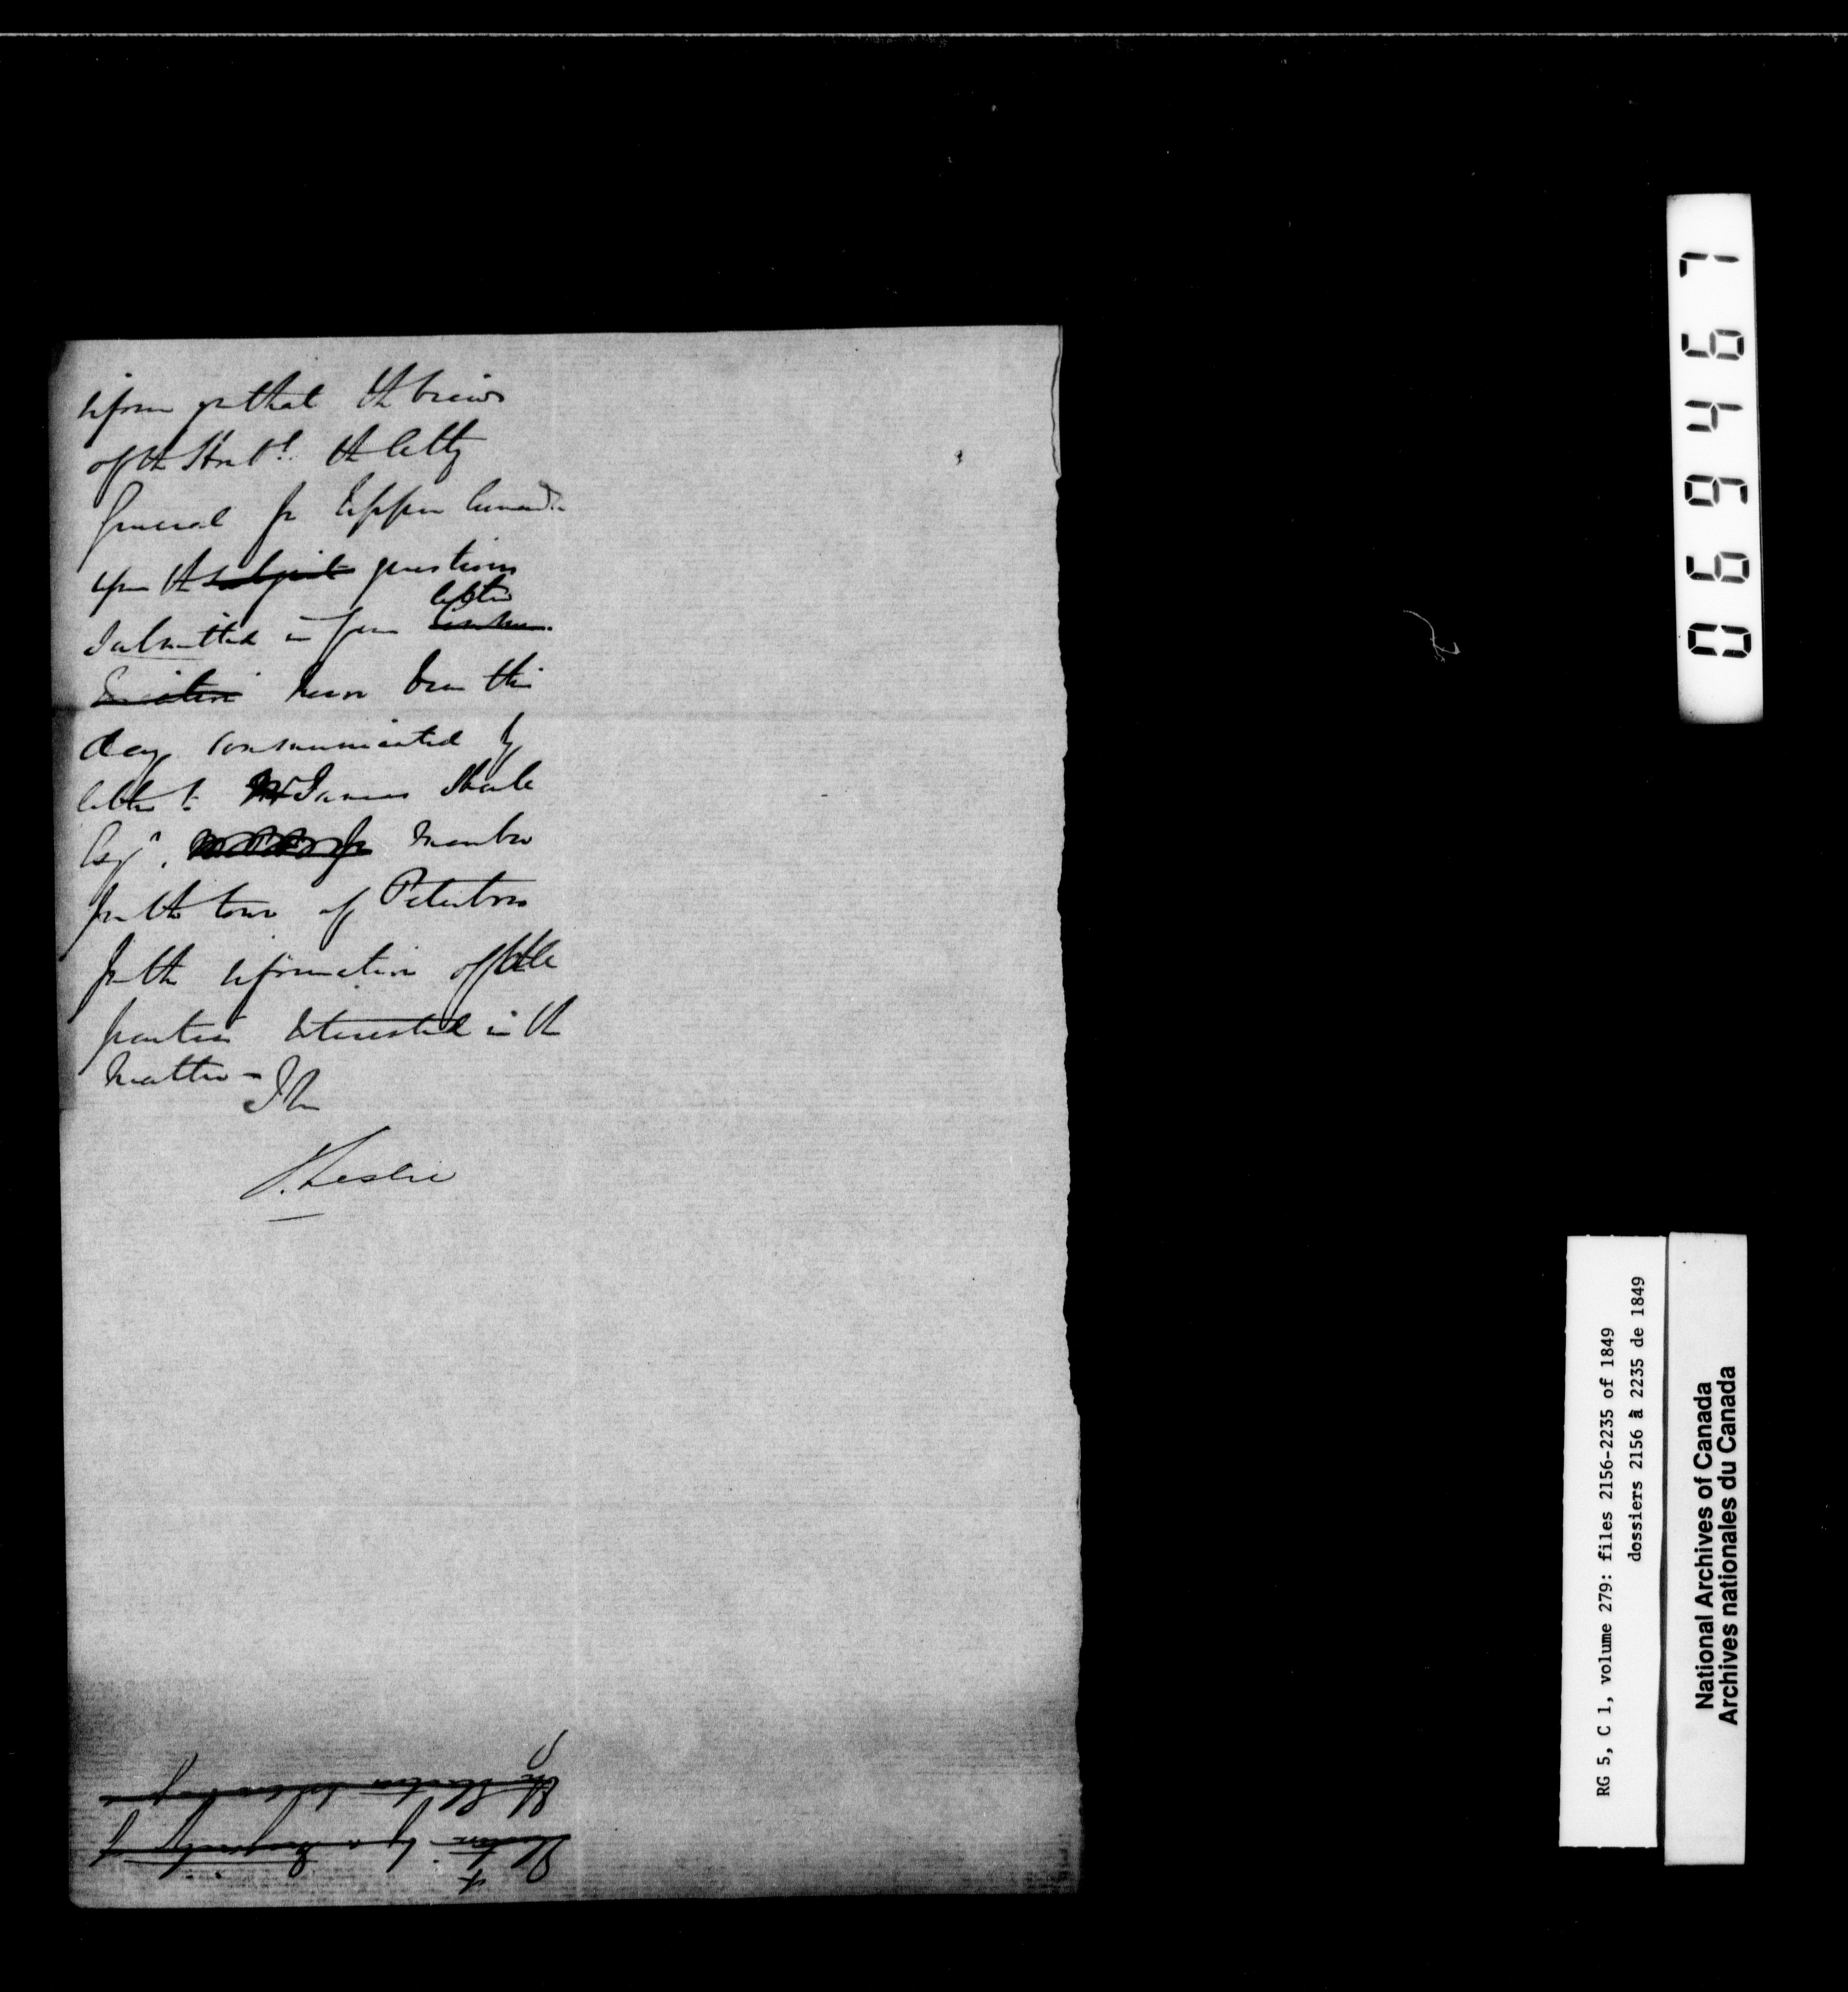 inform you that the views
of the Honbl. the Atty
General for Upper Canada
upon the subject questions
submitted in your letter
have been this
day communicated by
letter to Mr James Hall
Esqr. Member
for the town of Peterboro
for the information of the
parties interested in the
matter - I h
J. Leslie
069467
RG 5, C 1, volume 279: files 2156-2235 of 1849
dossiers 2156 à 2235 de 1849
National Archives of Canada
Archives nationales du Canada